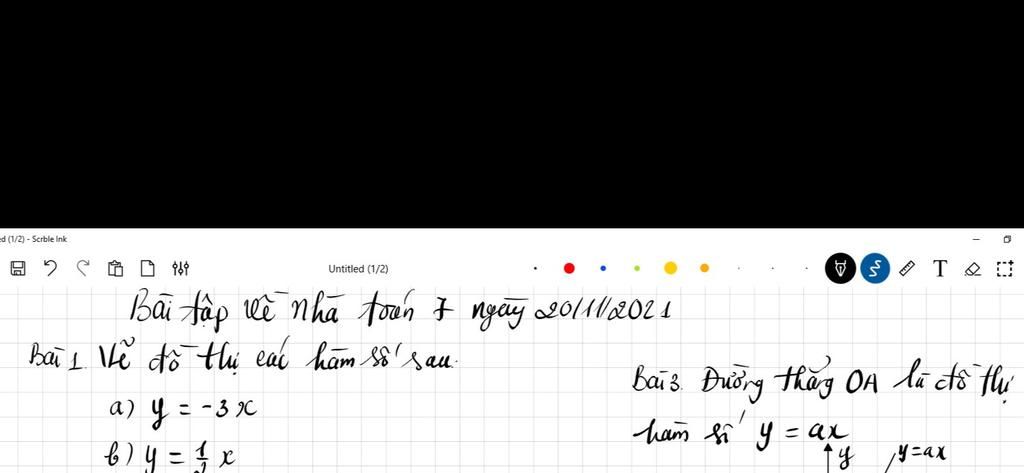 ed (1/2) - Scrble Ink
Untitled (1/2)
T
Bài tập về nhà toán 7 ngày 20/11/2021
Bài 1. Vẽ đồ thị các hàm số sau.
a) y = -3x
b) y = 1/2 x
Bài 3. Đường thẳng OA là đồ thị
hàm số y = ax
y
y=ax